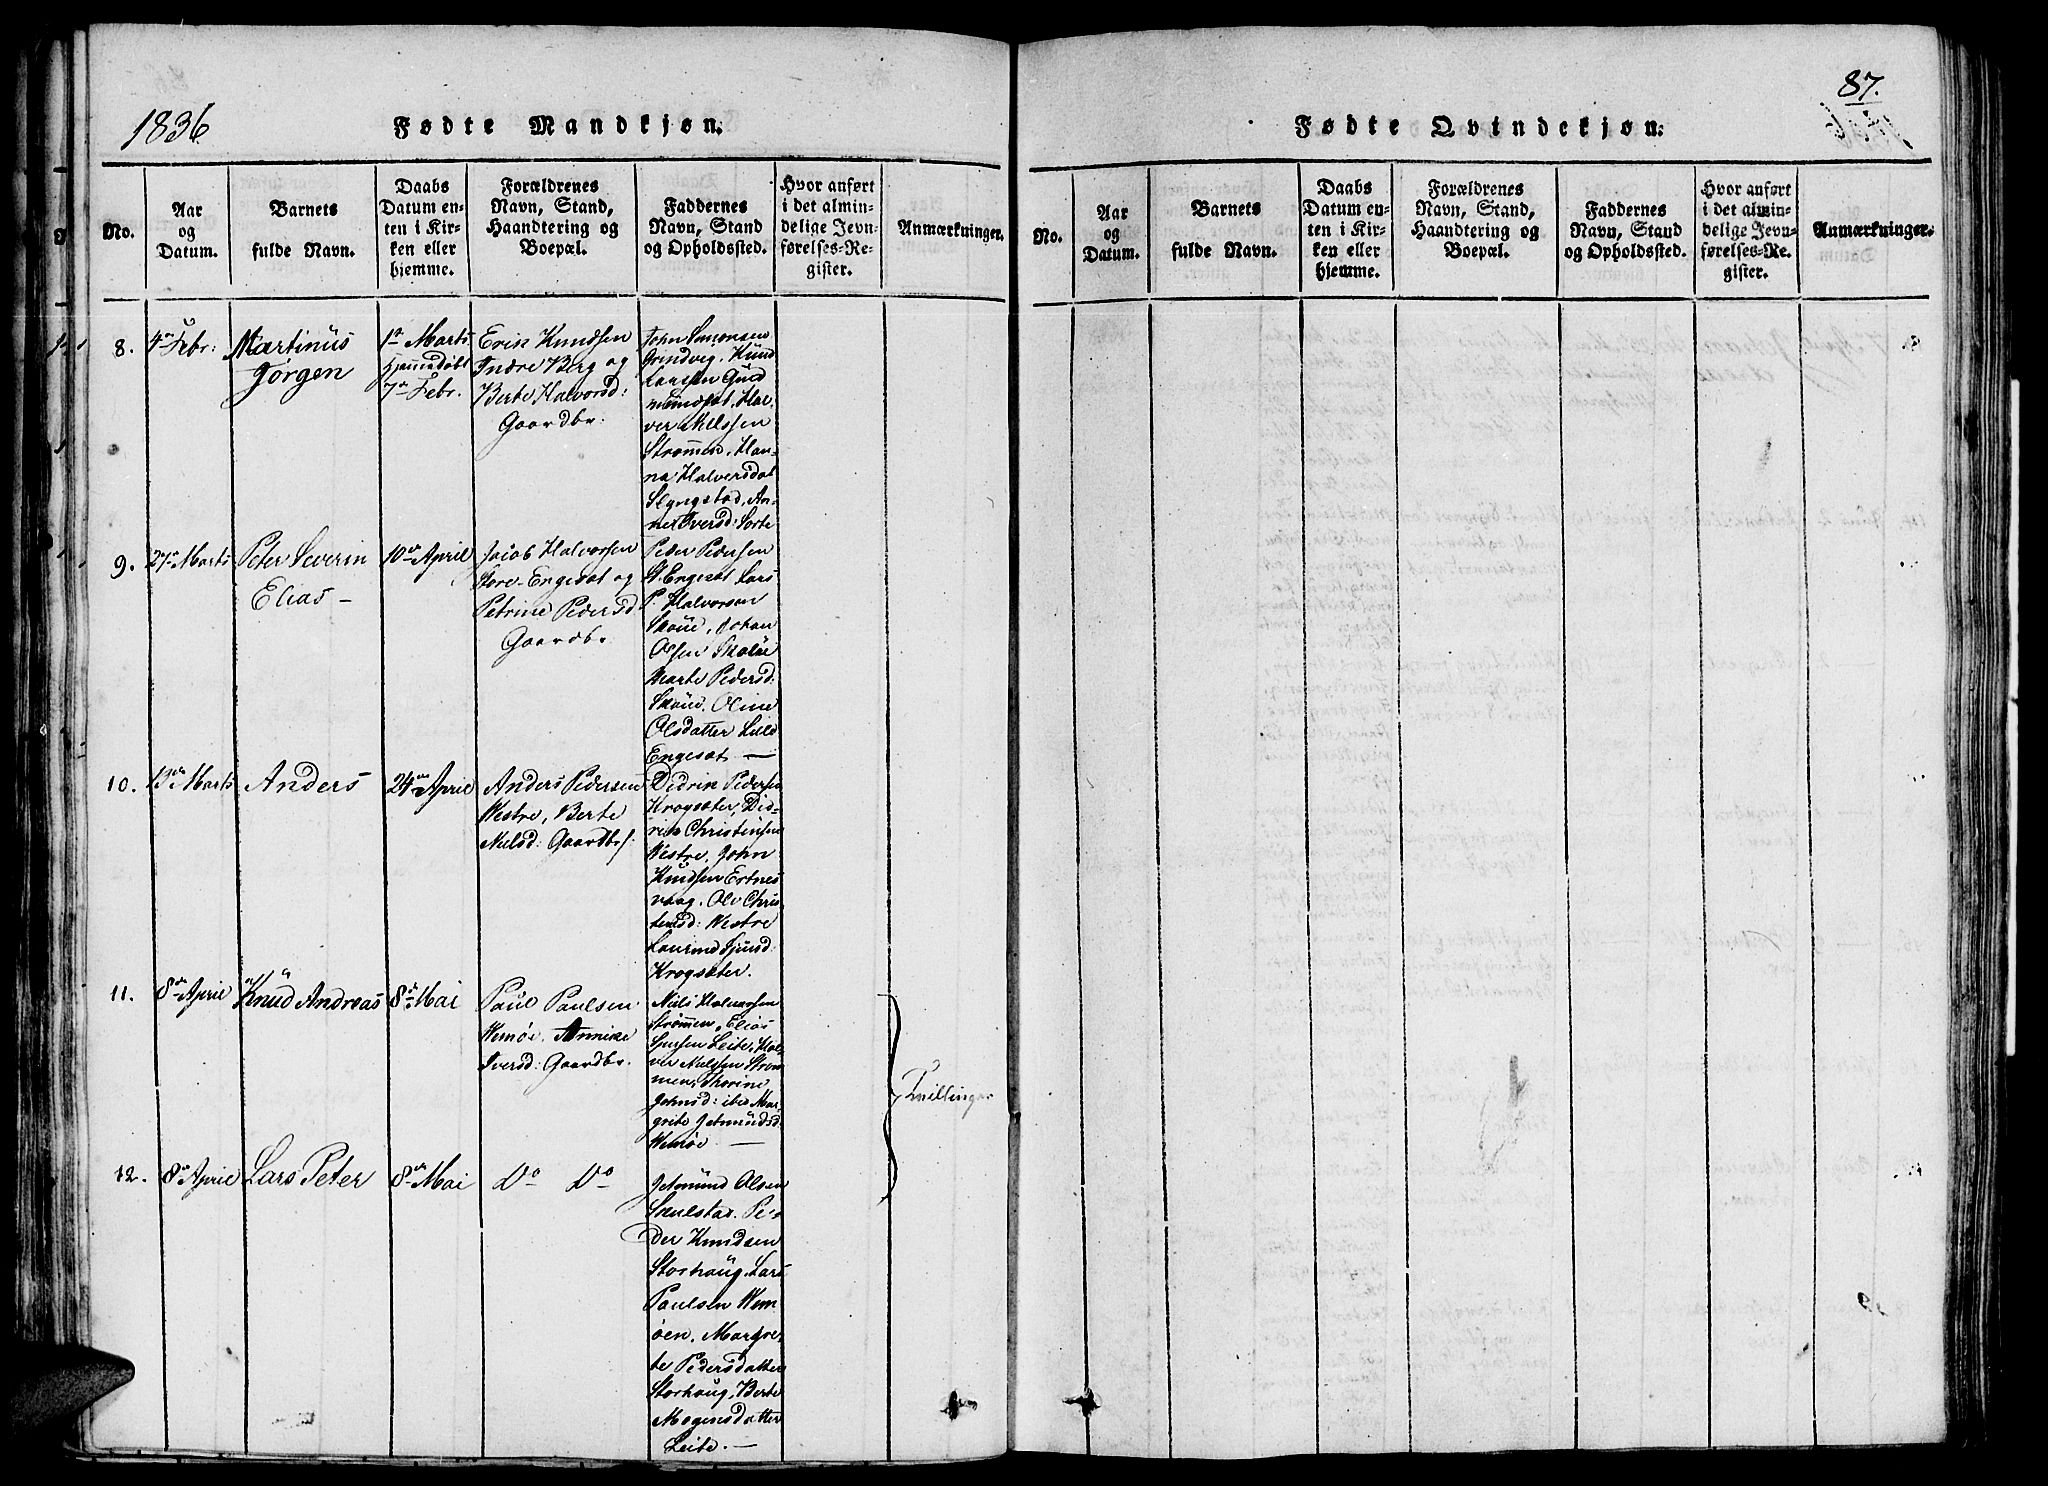 1836.
Fødte Mandkjøn.
No.
Aar
og
Datum.
Barnets
fulde Navn.
Daabs
Datum en-
ten i Kir-
ken eller
hjemme.
Forældrenes
Navn, Stand,
Haandtering og
Boepæl.
Faddernes
Navn, Stand
og Opholdssted.
Hvor anført
i det almin-
delige Jevn-
førelses-Re-
gister.
Anmærkninger.
8.
4de Febr:
Martinus
Jørgen
1ste Marts
Hjemmedøbt
7de Febr.
Eric Knudsen
Indre Berg og
Berte Halvorsd:
Gaardbr.
John Simonsen
Grindveg. Knud
Larsen Gud
Halver Nilssen
Strømmen, Han-
na Halversdat
Slyngstad, An-
ne Iversd: Sorte
9.
27de Marts
Peter Severin
Elias -
10de April
Jacob Halvorsen
Store-Engesæt og
Petrine Pedersd
Gaardbr
Peder Pedersen
St. Engesæt Lars
P. Halvorsen
Skoue, Johan
Olsen Skoue
Marte Pedersd:
Skoue. Oline
Olsdatter Lille
Engesæt. -
10.
13de Marts
Anders
24de April
Anders Pedersen
Westre, Berte
Nielsd: Gaardbrf:
Didrik Pedersen
Krogsæter, Did-
rik Christensen
Westre, John
Knudsen Ertnes
vaag. Ole Chris-
tensd: Westre
Laurine Sjursd:
Krogsæter.
11.
8de April
Knud Andreas
8de Mai
Paul Paulsen
Wemøe. Annike
Iversd: Gaardbr.
Niels Halvorsen
Strømmen, Elias
Leite, Hal-
ver Nielssen Strøm-
men, Thorine
Johnsd: ibid Mar-
grite Jetmundsd:
Wemøe -
Tvillinger
12.
8de April
Lars Peter
8de Mai
Do Do
Jetmund Olsen
Skulstad. Pe-
der Knudsen
Storhoug, Lars
Paulsen Wem-
øen, Margre-
te Pedersdatter
Storhoug, Berte
Mogensdatter
Leite. -
87.
Fødte Qvindekjøn.
No.
Aar
og
Datum.
Barnets
fulde Navn.
Daabs
Datum en-
ten i Kir-
ken eller
hjemme.
Forældrenes
Navn, Stand,
Haandtering og
Boepæl.
Faddernes
Navn, Stand
og Opholdssted.
Hvor anført
i det almin-
delige Jevn-
førelses-Re-
gister.
Anmærkninger.